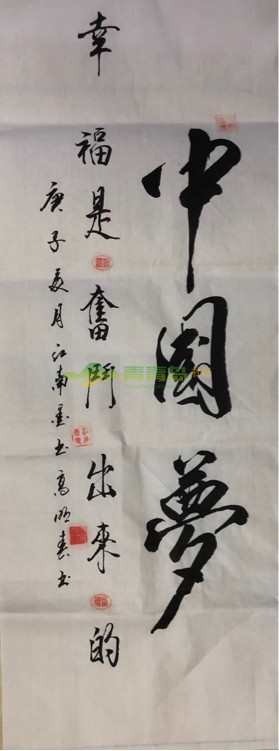 中國夢
幸福是奮鬥出來的
庚子夏月江南墨書高明春书
青青岛